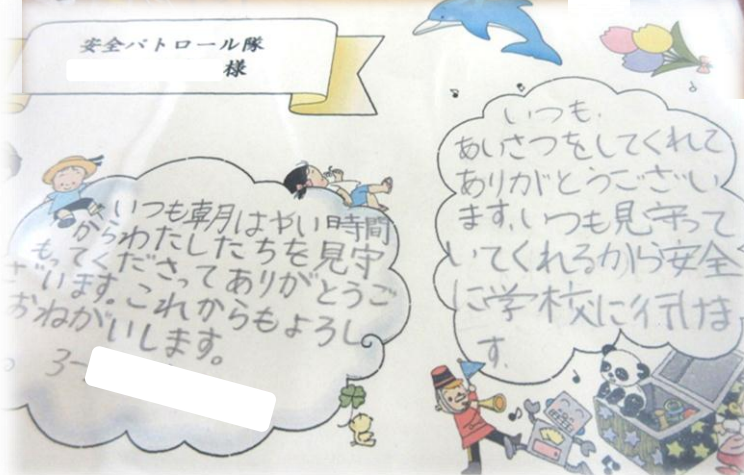 安全パトロール隊
様
いつも朝はやい時間
からわたしたちを見守
もってくださってありがとうご
ざいます。これからもよろし
おねがいします。
3-
いつも、
あいさつをしてくれて
ありがとうござい
ます。いつも見守って
いてくれるから安全
に学校に行けま
す。